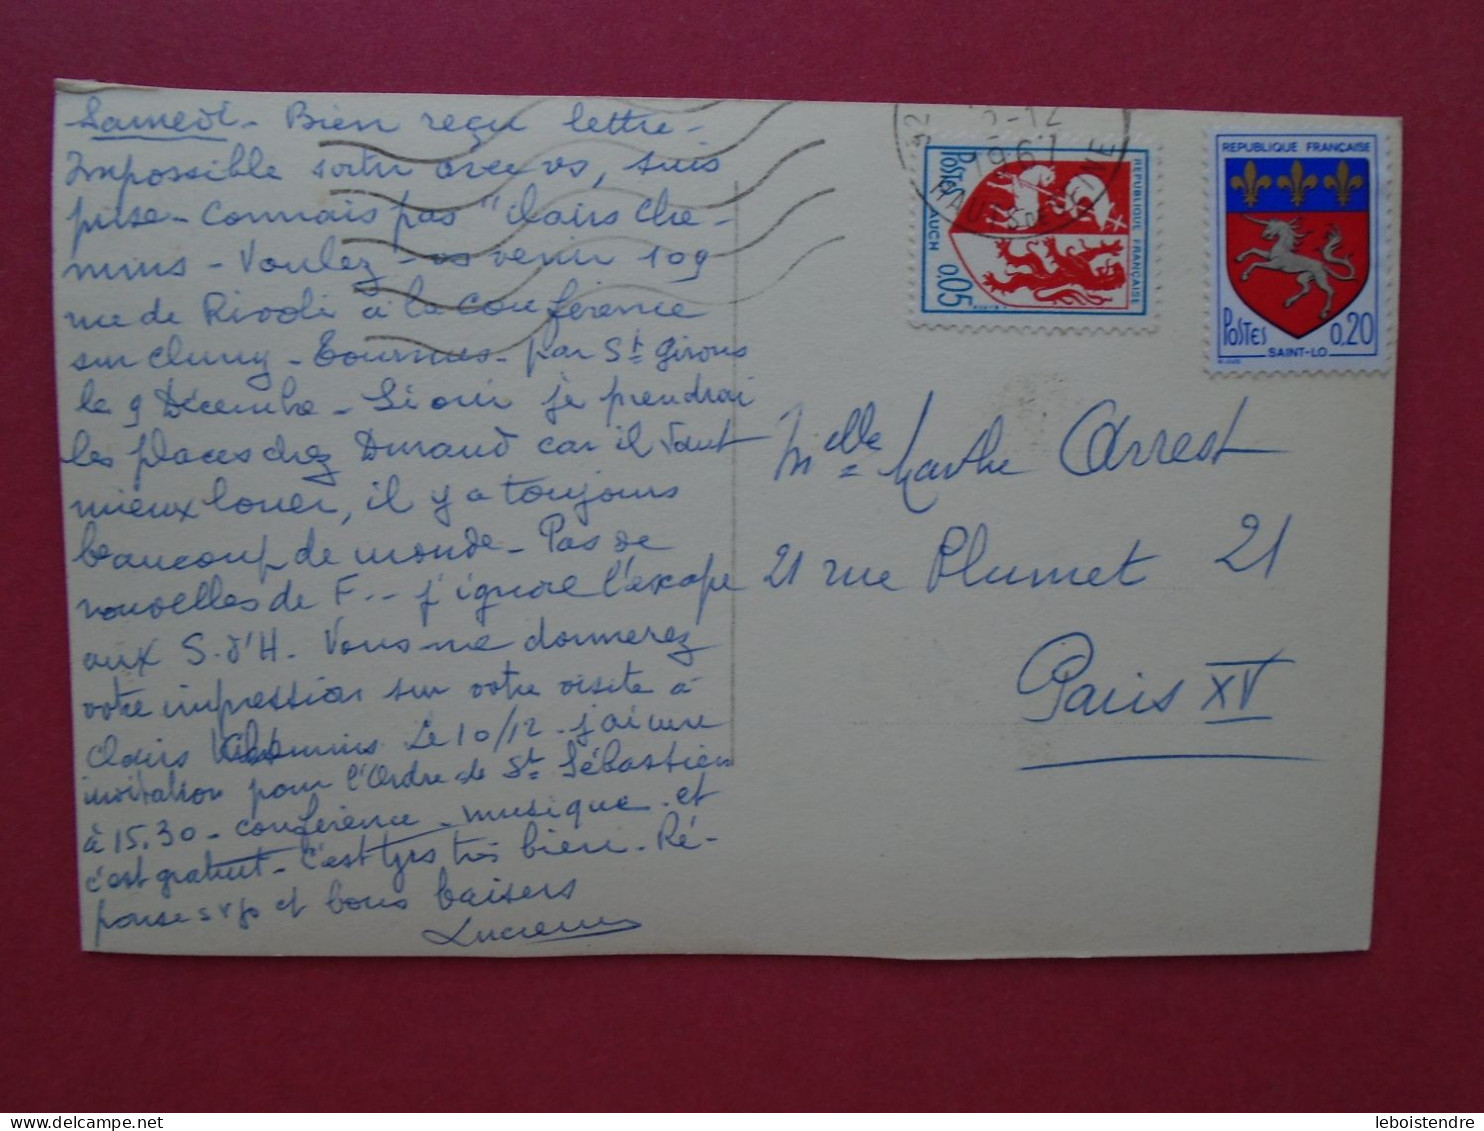 Samedi - Bien reçu lettre -
Impossible sortir avec vs, suis
prise - Connais pas "Clairs Che-
mins - Voulez-vs venir 109
rue de Rivoli à la conférence
sur Cluny - Tournus - par St Girons
le 9 Décembre - Si oui je prendrai
les places chez Durand car il vaut
mieux louer, il y a toujours
beaucoup de monde - Pas de
nouvelles de F.. - j'ignore l'expo
aux S. d'H. Vous me donnerez
votre impression sur votre visite à
Clairs Chemins Le 10/12 - j'ai une
invitation pour l'Ordre de St Sébastien
à 15,30 - conférence - musique - et
c'est gratuit - C'est tjrs très bien - Ré-
ponse svp et bons baisers
Lucienne
Melle Marthe Arrest
21 rue Plumet 21
Paris XV
2-12
1967
HAUTS DE SEINE
REPUBLIQUE FRANCAISE
POSTES
AUCH
0,05
REPUBLIQUE FRANCAISE
POSTES
0,20
SAINT-LO
leboistendre